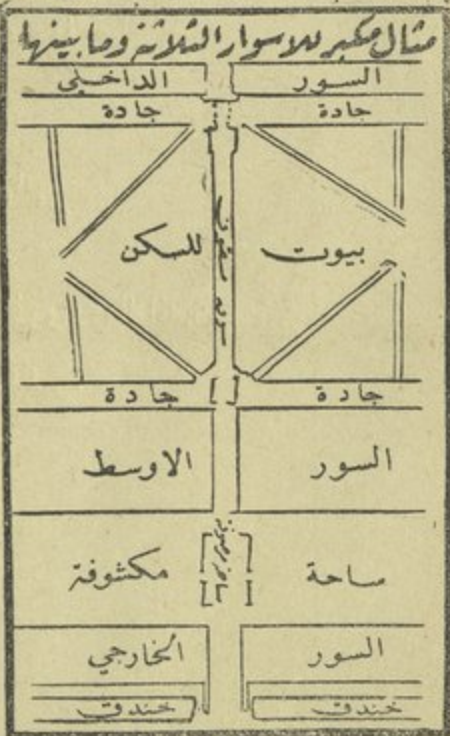 مثال مكبر للاسوار الثلاثة وما بينها
السور الداخلي
جادة جادة
بيوت للسكن
جادة جادة
السور الاوسط
ساحة مكشوفة
السور الخارجي
خندق خندق